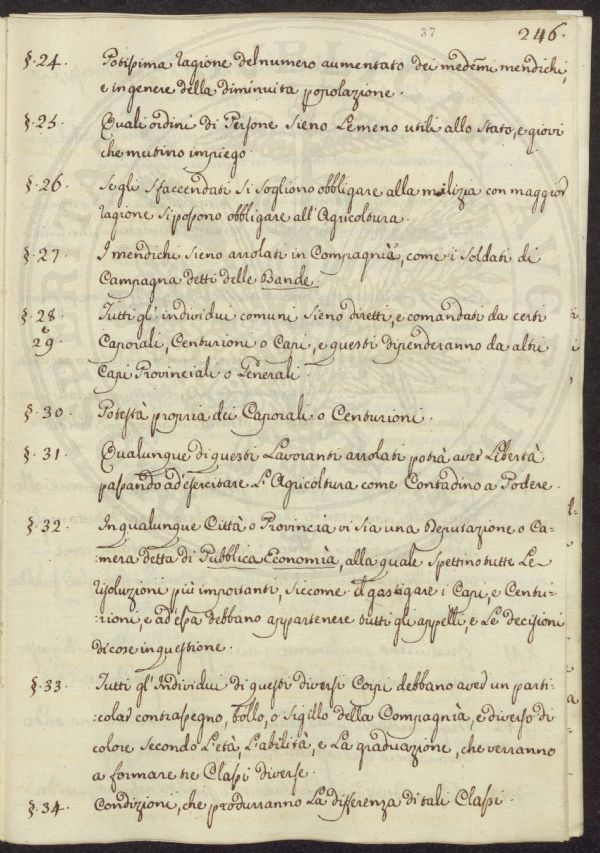 37
246.
§.24. Potissima ragione del numero aumentato dei medemi mendichi,
e in genere della diminuita popolazione.
§.25. Quali ordini di Persone sieno le meno utili allo Stato, e giovi
che mutino impiego.
§.26. Se gli sfaccendati si sogliono obbligare alla milizia con maggior
ragione si possono obbligare all'Agricoltura.
§.27. I mendichi sieno arrolati in Compagnie, come i Soldati di
Campagna detti delle Bande.
§.28 Tutti gl'individui comuni sieno diretti, e comandati da certi
e
29. Caporali, Centurioni o Capi, e questi dipenderanno da altri
Capi Provinciali o Generali.
§.30. Potestà propria dei Caporali o Centurioni.
§.31. Qualunque di questi Lavoranti arrolati potrà aver Libertà
passando ad esercitare L'Agricoltura come Contadino a Podere.
§.32. In qualunque Città o Provincia vi sia una Deputazione o Ca-
:mera detta di Pubblica Economìa, alla quale spettino tutte Le
risoluzioni più importanti, siccome il gastigare i Capi, e Centu-
:rioni, e ad essa debbano appartenere tutti gli appelli, e Le decisioni
di cose in questione.
§.33. Tutti gl'Individui di questi diversi Corpi debbano aver un parti-
:colar contrassegno, bollo, o Sigillo della Compagnìa, e diverso di
colore secondo L'età, L'abilità, e La graduazione, che verranno
a formare tre Classi diverse.
§.34. Condizioni, che produrranno La differenza di tali Classi.